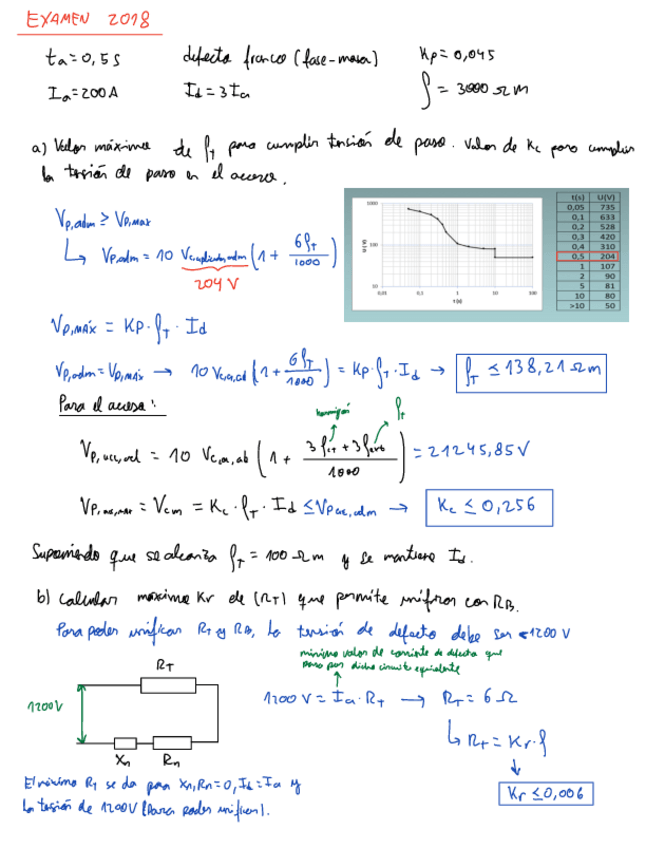 EXAMEN 2018
ta = 0,5 s defecto franco (fase-masa) Kp = 0,045
Ia = 200 A Id = 3 Ia ρ = 3000 Ωm
a) Valor máximo de ρT para cumplir tensión de paso. Valor de Kc para cumplir
la tensión de paso en el acceso.
Vp,adm ≥ Vp,max
↳ Vp,adm = 10 Vc,aplicada,adm (1 + 6ρT/1000)
204 V
U(V)
1000
100
10
0,01 0,1 1 10 100
t(s)
t(s) U(V)
0,05 735
0,1 633
0,2 528
0,3 420
0,4 310
0,5 204
1 107
2 90
5 81
10 80
>10 50
Vp,máx = Kp · ρT · Id
Vp,adm = Vp,máx → 10 Vc,a,ad (1 + 6ρT/1000) = Kp · ρT · Id → ρT ≤ 138,21 Ωm
Para el acceso:
hormigón ρt
Vp,acc,ad = 10 Vc,a,ab (1 + 3ρ + 3ρ / 1000) = 21245,85 V
Vp,ac,max = Vcm = Kc · ρT · Id ≤ Vp ac,adm → Kc ≤ 0,256
Suponiendo que se alcanza ρT = 100 Ωm y se mantiene Id.
b) Calcular máxima Kr de (RT) que permite unificar con RB.
Para poder unificar RT y RB, la tensión de defecto debe ser < 1200 V
mínimo valor de corriente de defecto que
pasa por dicho circuito equivalente
RT
1200 V = Ia · RT → RT = 6 Ω
1200V
↳ RT = Kr · ρ
Xn Rn
Kr ≤ 0,006
El máximo RT se da para Xn, Rn = 0, Id = Ia y
la tensión de 1200V (para poder unificar).